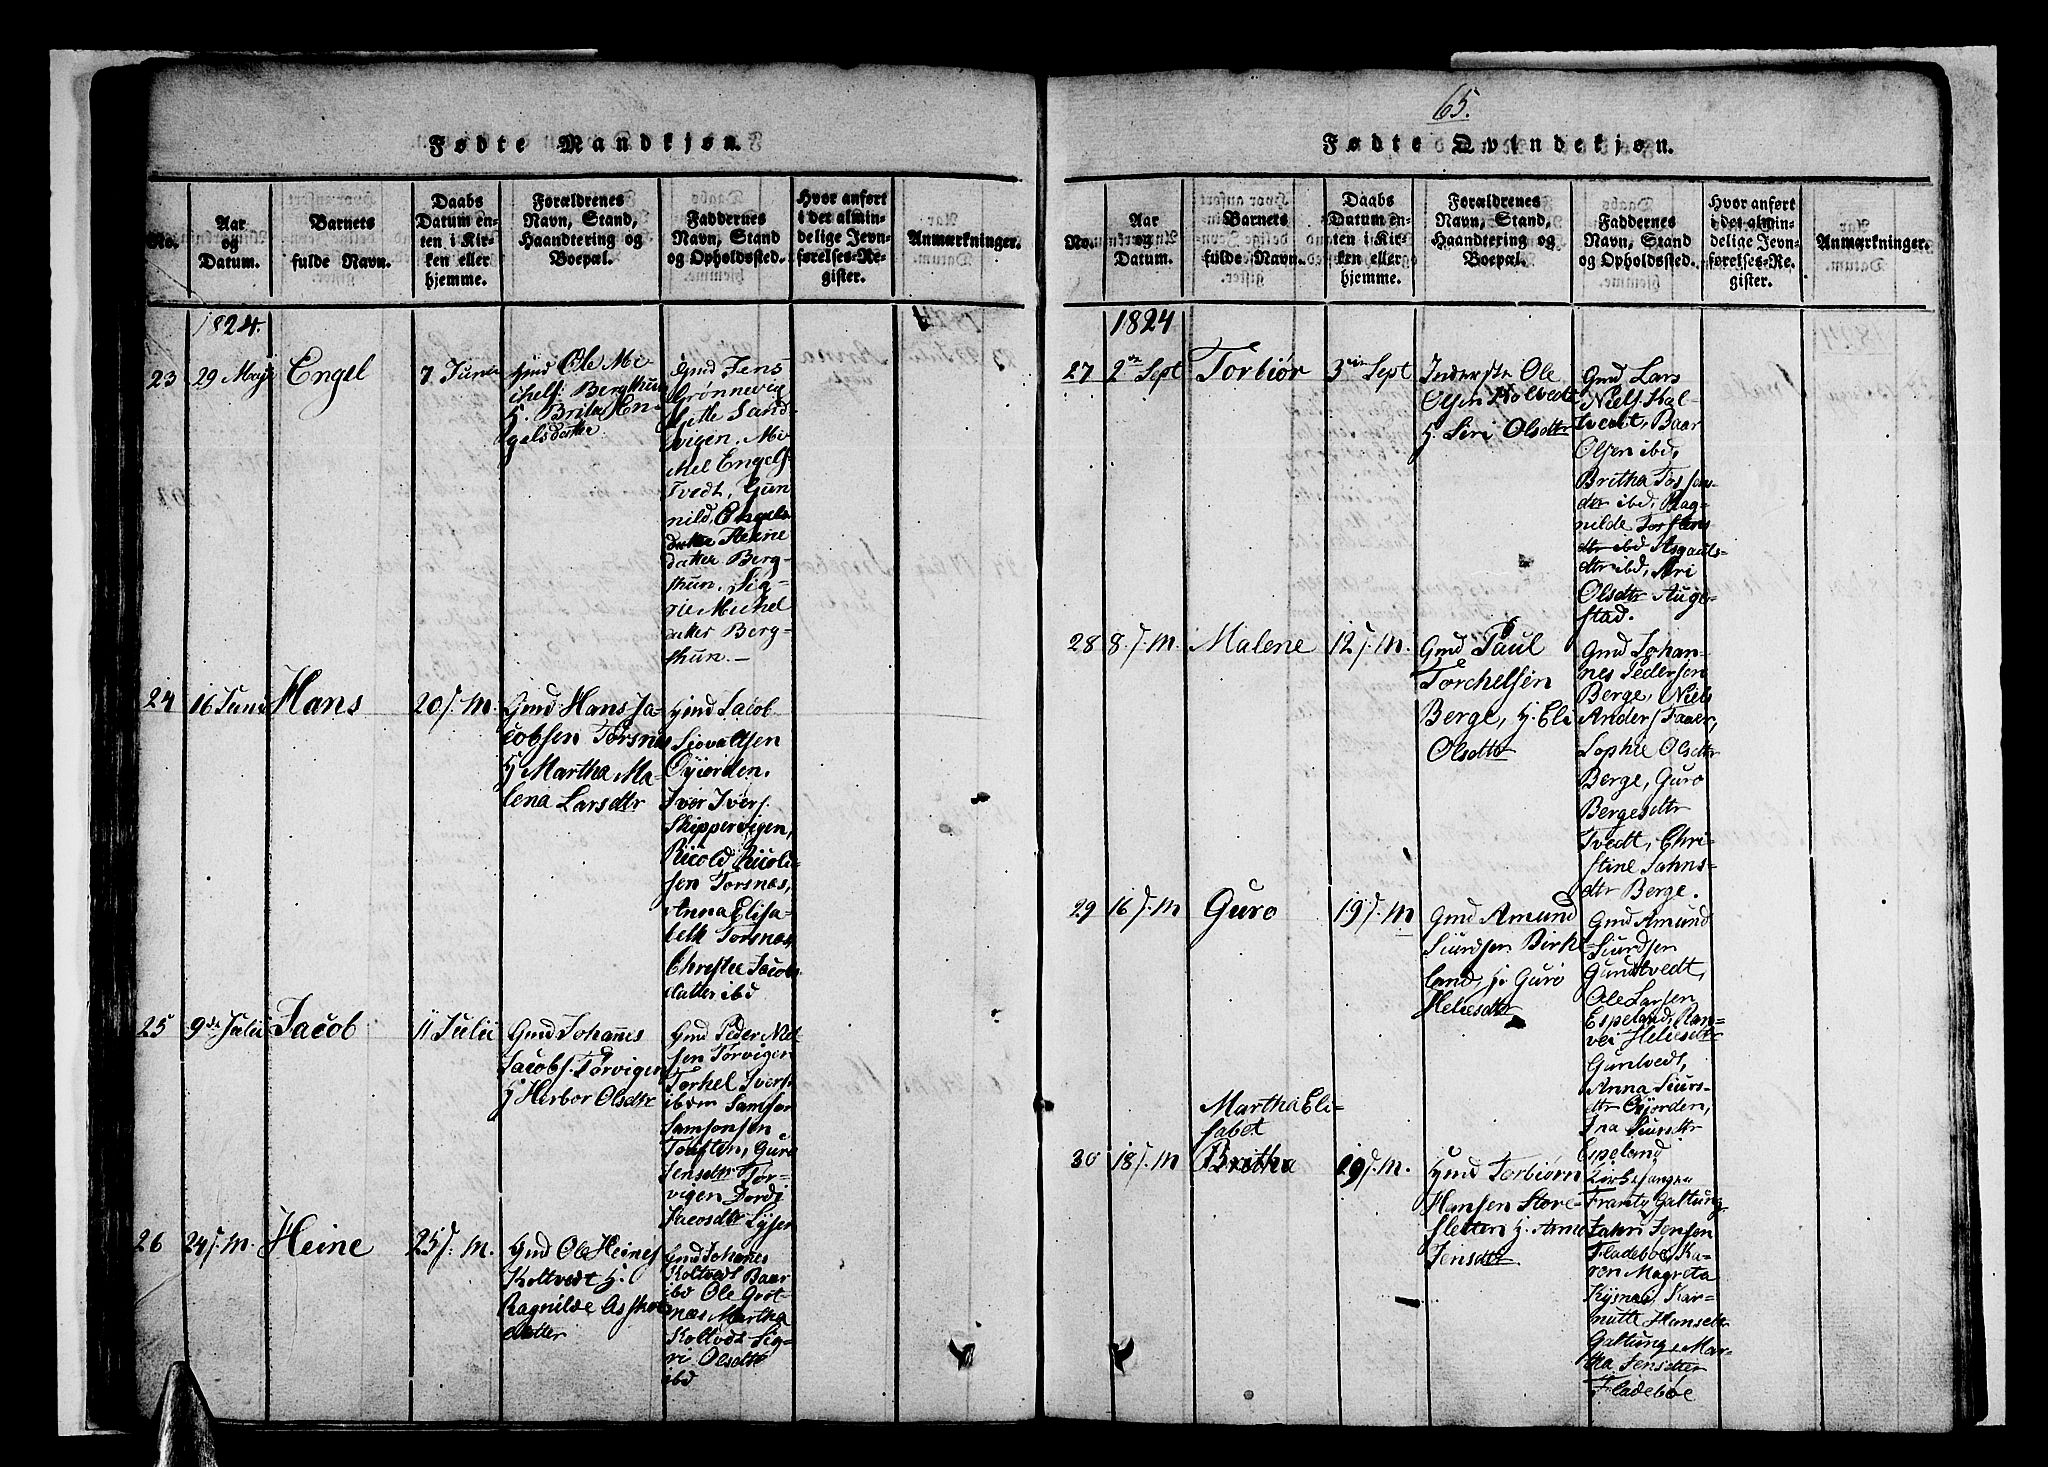 Fødte Mandkjøn.
No.
Aar
og
Datum.
Barnets
fulde Navn.
Daabs
Datum en-
ten i Kir-
ken eller
hjemme.
Forældrenes
Navn, Stand,
Haandtering og
Boepæl.
Faddernes
Navn, Stand
og Opholdssted.
Hvor anført
i det almin-
delige Jevn-
førelses-Re-
gister.
Anmærkninger.
1824.
23
29 Maji
Engel
7 Junii
Gmd Ole Mi
chels: Bergthun
H. Brita En-
gelsdatter
Gmd Jens
Grønnevig
Mette Sand-
vigen, Mi-
chel Engels
Tvedt, Gun
nild Engels
datter
datter Berg-
thun, Sig-
rie Michel
datter Berg-
thun.
24
16 Juni
Hans
20 s. M.
Gmd Hans Ja-
cobsen Torsnæs
H Martha Ma-
lena Larsdtr
Gmd Jacob
Siovaltsen
Øyjorden.
Iver Ivers.
Skippervigen,
Ricold Ricold-
sen Torsnæs,
Anna Elisa-
beth Torsnæs
Christie Jacobs
datter ibd
25
9de Julii
Jacob
11 Julii
Gmd Johannes
Jacobs. Torvigen
H Herbor Olsdtr
Gmd Peder Nel-
sen Torvigen
Torkel Ivers.
ibdem Samson
Samsonsen
Guro
Jensdtr Tor-
vigen Jordi
26
24 s. M.
Heine
25 s. M.
Gmd Ole Heines
Koltvedt H.
Ragnilde
datter
Gmd Johanes
Koltvedt Baar
ibd Ole Grot-
næs Martha
Koltvedt Sig-
ri Olsdtr
ibd
65.
Fødte Qvindekjøn.
No.
Aar
og
Datum.
Barnets
fulde Navn.
Daabs
Datum en-
ten i Kir-
ken eller
hjemme.
Forældrenes
Navn, Stand,
Haandtering og
Boepæl.
Faddernes
Navn, Stand
og Opholdssted.
Hvor anført
i det almin-
delige Jevn-
førelses-Re-
gister.
Anmærkninger.
1824
27
2den Sept
Torbiør
3die Sept
Inderste Ole
Olsen Kolvedt
H. Siri Olsdtr
Gmd Lars
Niels. Kol-
tvedt, Baar
Olsen ibd,
Britha Torstens
dtr ibd, Rag-
nilde Torstens
dtr ibd Asgauts-
dtr ibd, Ari
Olsdtr Auge-
stad.
28
8 s. M.
Malene
12 s. M.
Gmd Paul
Torchelsen
Berge, H. Eli
Olsdtr
Gmd Johan-
nes Pedersen
Berge, Niels
Anders.
Sophie Olsdtr
Berge, Guro
Bergesdtr
Tvedt, Chri-
stine Jahns-
dtr Berge.
29
16 s. M
Guro
19 s. M
Gmd Amund
Siurdsen Birke-
land, H. Guro
Heliesdtr
Gmd Amund
Siurdsen
Guntvedt,
Ole Larsen
Espeland, Ran-
vei Heliesdtr
Guntvedt,
Anna Siurs-
dtr Øyjorden,
Ina Siursdtr
Espeland
Martha Eli-
sabet
30
18 s. M
Britha
19 s. M.
Gmd Torbiørn
Hansen Store-
sletten H. Anna
Jensdtr
Kirkesanger
Frantz Galtung
Jahn Jensen
Fladebøe, Ka-
ren Magreta
Kysnæs, Kar-
Hansdtr
Galtung, Mar-
tha Jensdtr
Fladebøe